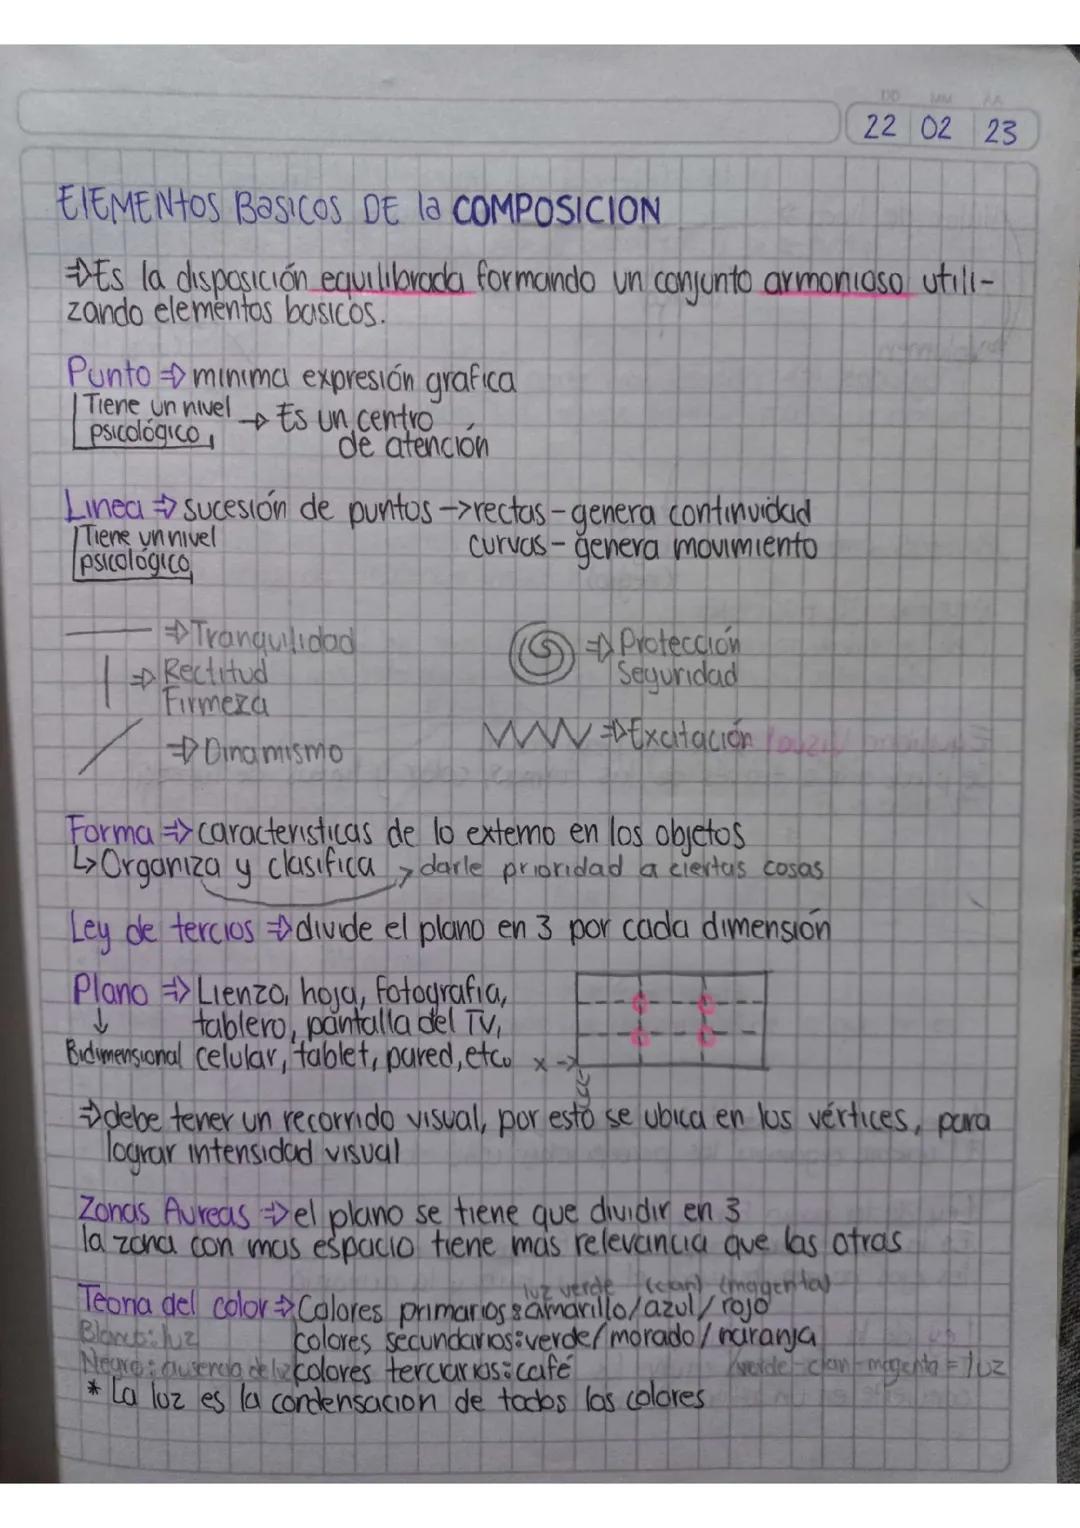 DD MM AA
22 02 23
ElEMENtOS BaSICOS DE la COMPOSICION
⇒Es la disposición equilibrada formando un conjunto armonioso utili-
zando elementos basicos.
Punto ⇒ minima expresión grafica
Tiene un nivel → Es un centro
psicológico de atención
Linea ⇒ sucesión de puntos → rectas - genera continuidad
Tiene un nivel curvas - genera movimiento
psicológico
⇒ Tranquilidad ⇒ Protección
⇒ Rectitud Seguridad
Firmeza
⇒ Dinamismo ⇒ Excitación
Forma ⇒ caracteristicas de lo externo en los objetos
↳ Organiza y clasifica → darle prioridad a ciertas cosas
Ley de tercios ⇒ divide el plano en 3 por cada dimensión
Plano ⇒ Lienzo, hoja, fotografia,
↓ tablero, pantalla del TV,
Bidimensional celular, tablet, pared, etc. x →
⇒ debe tener un recorrido visual, por esto se ubica en los vértices, para
lograr intensidad visual
Zonas Aureas ⇒ el plano se tiene que dividir en 3
la zona con mas espacio tiene más relevancia que las otras
luz verde (cian) (magenta)
Teoria del color ⇒ Colores primarios: amarillo/azul/rojo
Blanco: luz colores secundarios: verde/morado/naranja
Negro: ausencia de luz colores terciarios: café verde-cian-magenta = luz
* La luz es la condensacion de todos los colores